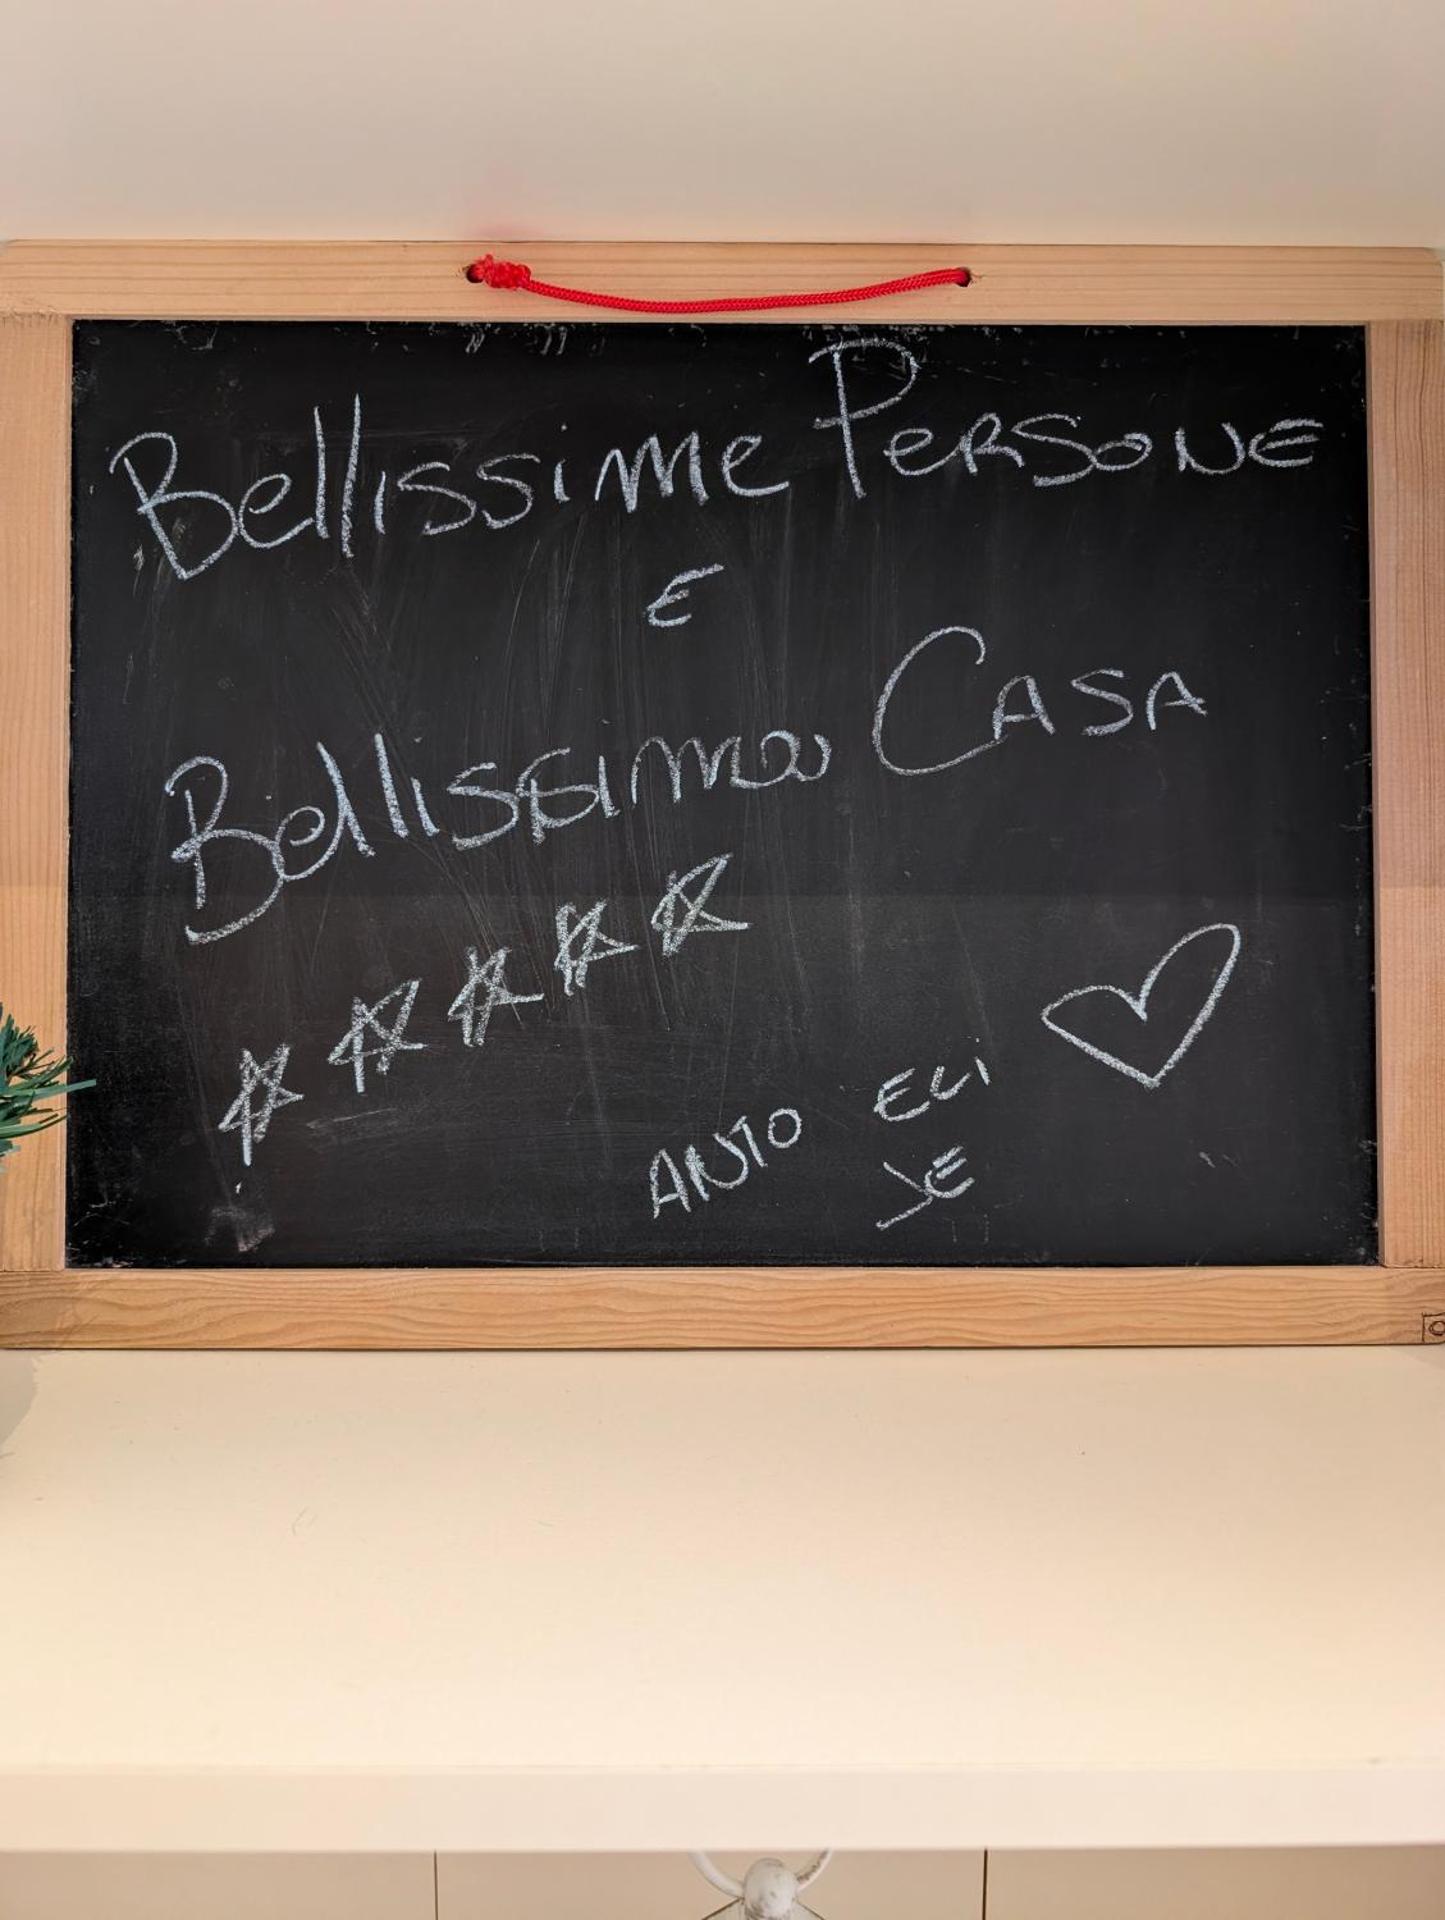 Bellissime Persone
e
Bellissima Casa
Anto Eli
Je